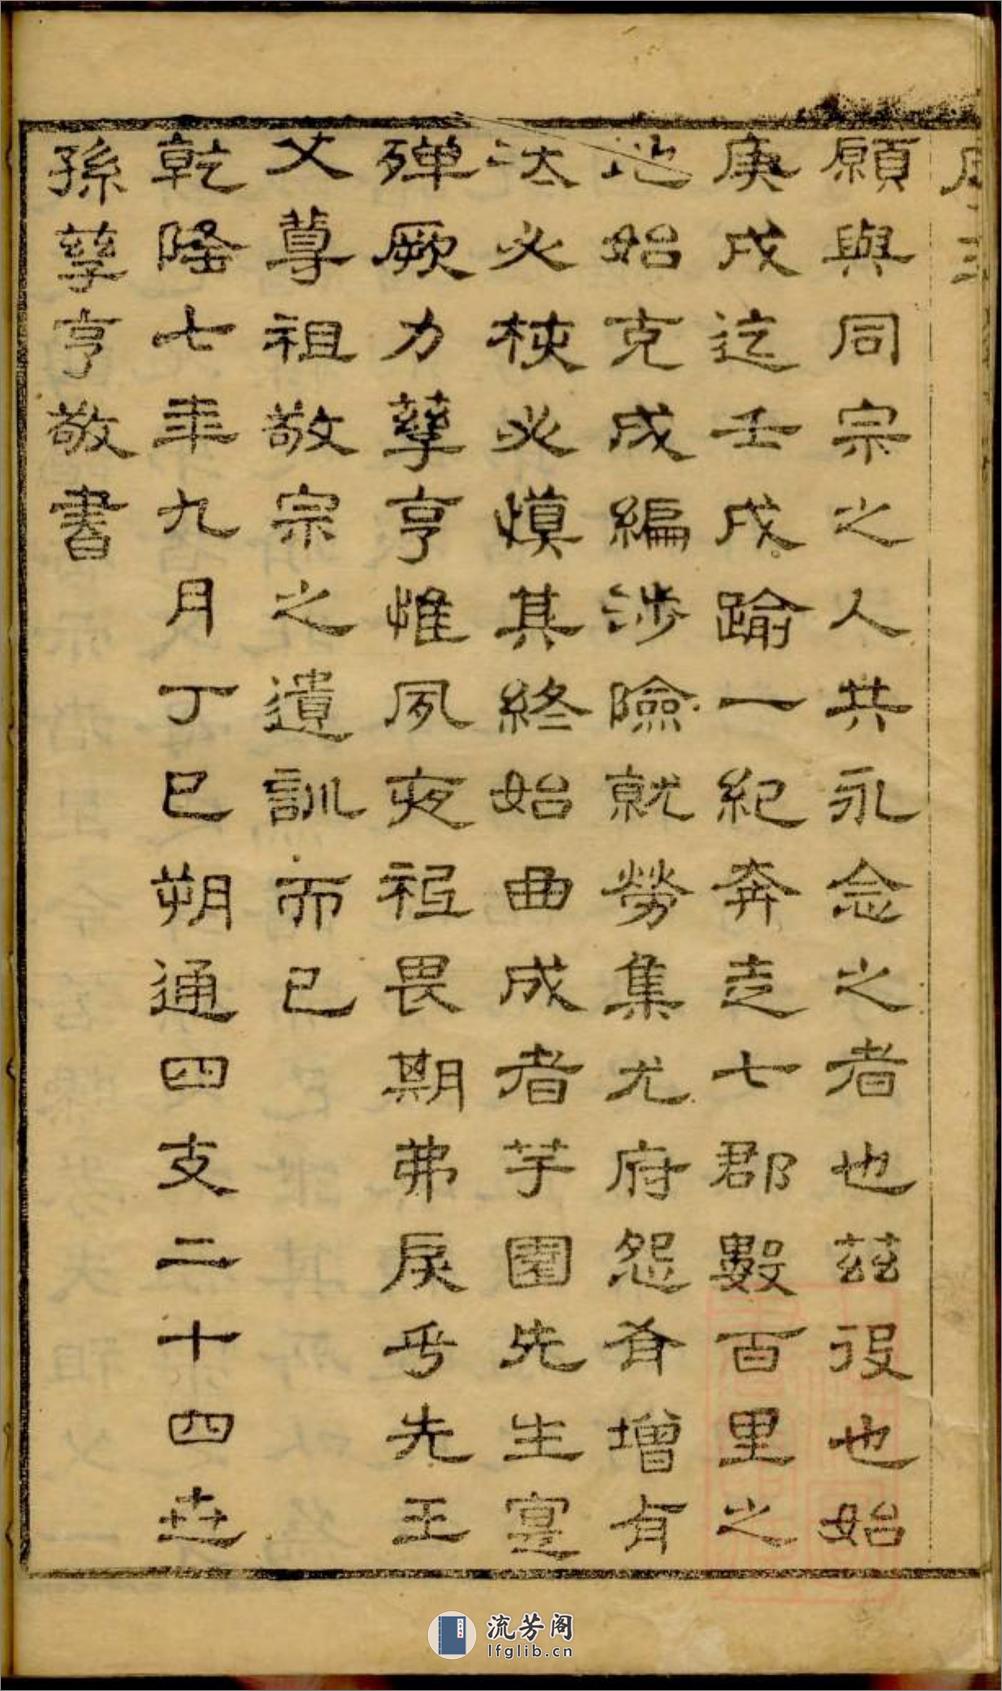 願與同宗之人共永念之者也茲役也始
庚戌迄壬戌踰一紀奔走七郡數百里之
地始克成編涉險就勞集尤府怨脊增有
汏必梜必慎其終始曲成者芋園先生寔
殫厥力孳亨惟夙夜祗畏期弗戾乎先王
父尊祖敬宗之遺訓而已
乾隆七年九月丁巳朔通四支二十四世
孫孳亨敬書
流芳阁
lfglib.cn